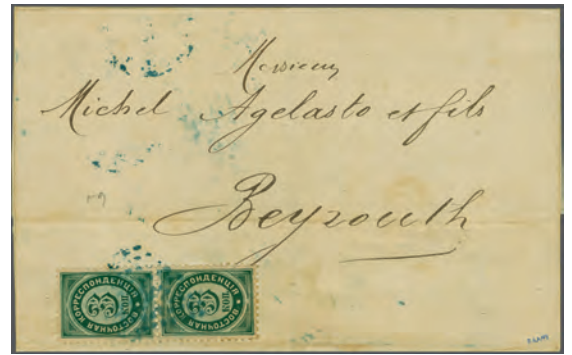 Messieurs
Michel Agelasto et fils
Beyrouth
ВОСТОЧНАЯ КОРРЕСПОНДЕНЦІЯ
3 КОП.
ВОСТОЧНАЯ КОРРЕСПОНДЕНЦІЯ
3 КОП.